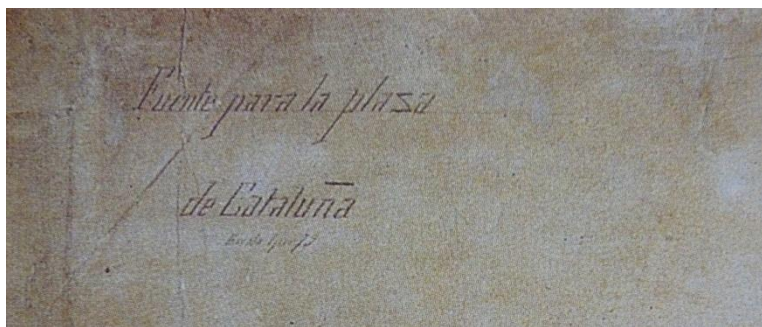 Fuente para la plaza
de Cataluña